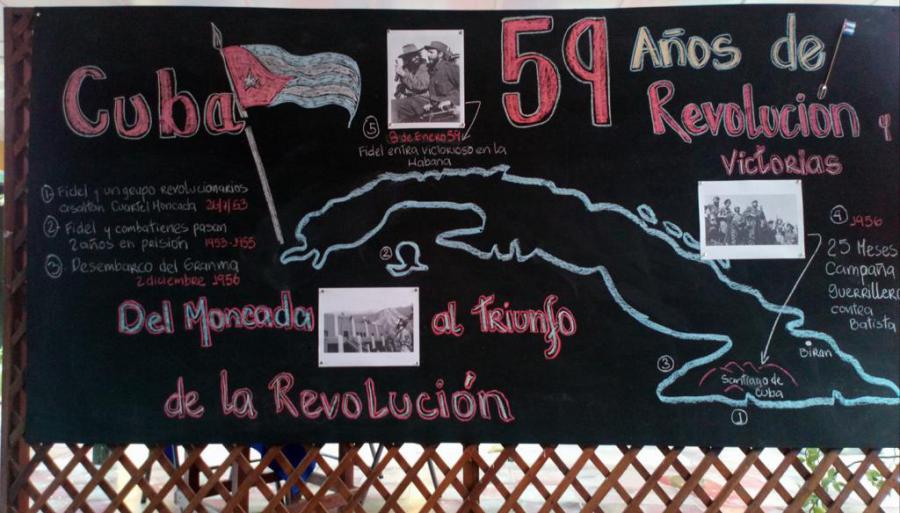 Cuba
59 Años de
Revolución y
Victorias
⑤
8 de Enero 59
Fidel entra victorioso en la
Habana
① Fidel y un grupo revolucionarios
asaltan Cuartel Moncada 26/7/53
② Fidel y combatienes pasan
2 años en prisión 1953-1955
③. Desembarco del Granma
2 diciembre 1956
②
④ 1956
25 Meses
Campaña
guerrillera
contra
Batista
Birán
③
Santiago de
Cuba
①
Del Moncada al Triunfo
de la Revolución